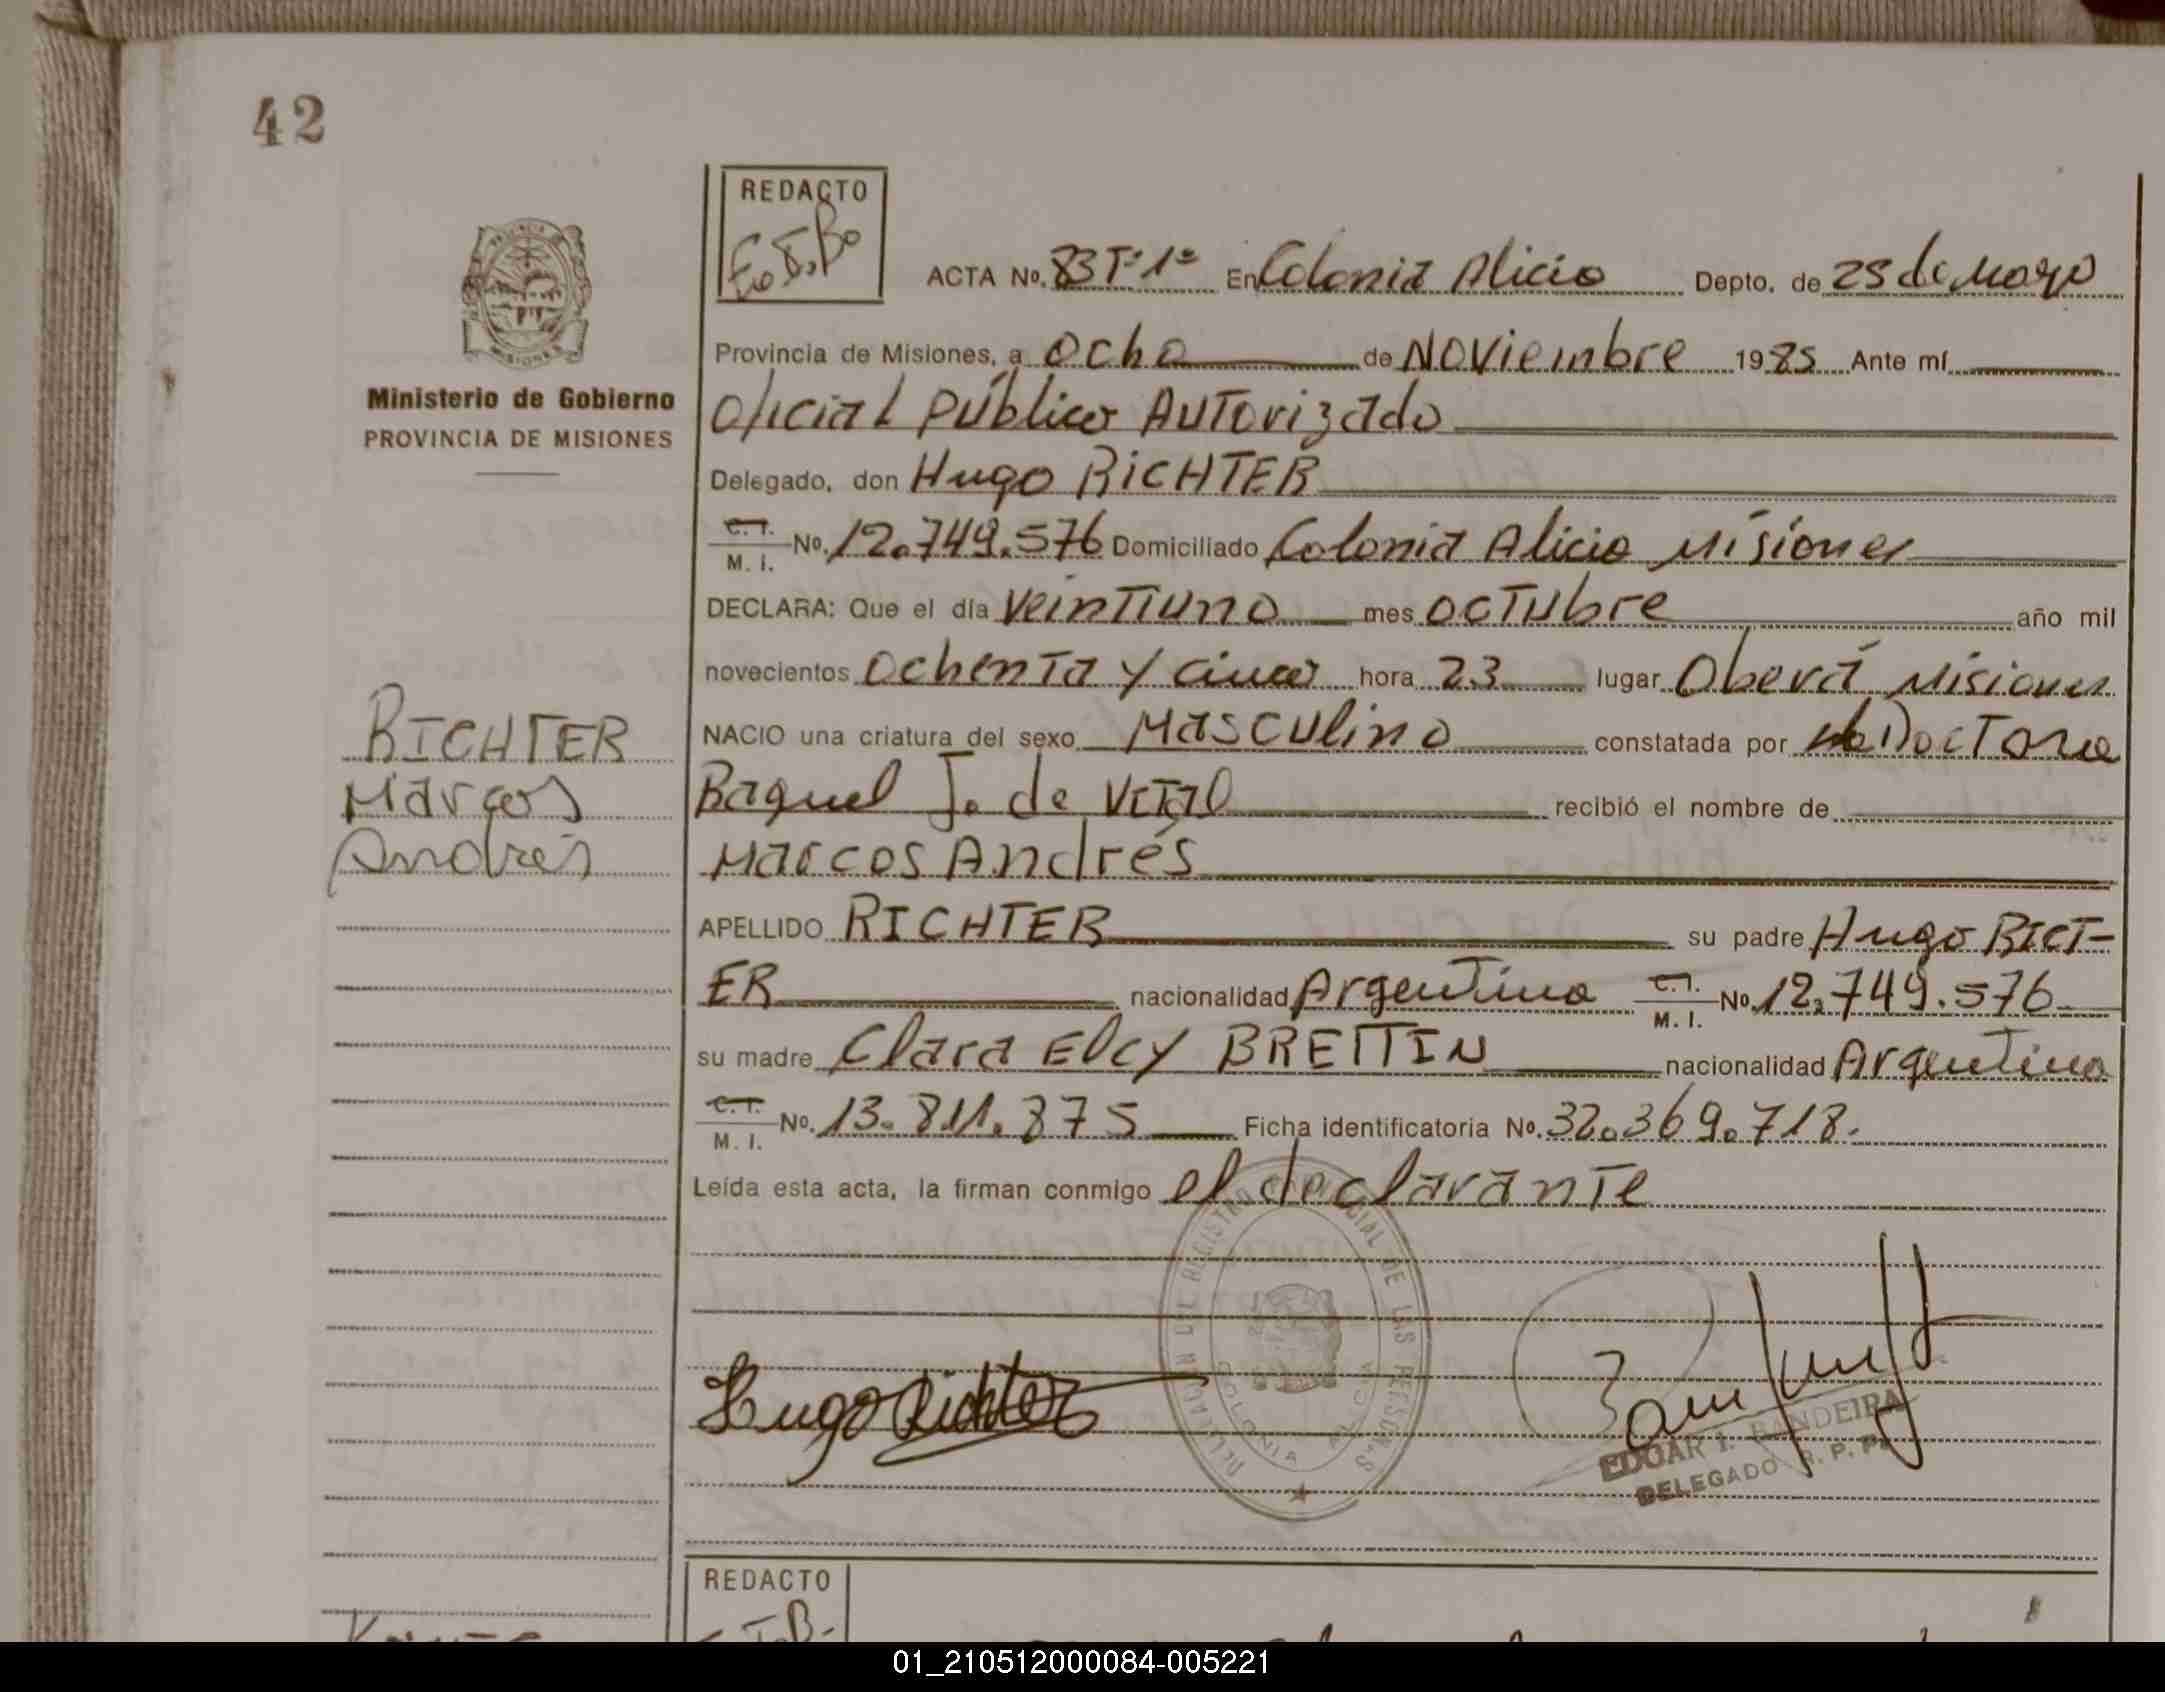 42
REDACTO
E. I. Ba
ACTA No. 83 Tº 1º En Colonia Alicia Depto. de 25 de Mayo
Provincia de Misiones, a ocho de Noviembre 1985 Ante mí
Oficial Público Autorizado
Ministerio de Gobierno
PROVINCIA DE MISIONES
Delegado, don Hugo RICHTER
C. I. M. I. No. 12.749.576 Domiciliado Colonia Alicia Misiones
DECLARA: Que el día veintiuno mes octubre año mil
novecientos ochenta y cinco hora 23 lugar Oberá Misiones
NACIO una criatura del sexo Masculino constatada por Doctora
Raquel J. de
recibió el nombre de
Marcos Andrés
RICHTER
Marcos
Andrés
APELLIDO RICHTER su padre Hugo RICT-
ER nacionalidad Argentina C. I. M. I. No. 12.749.576
su madre Clara Elcy BREITTIN nacionalidad Argentina
C. I. M. I. No. 13.811.875 Ficha identificatoria No. 32.369.718.
Leída esta acta, la firman conmigo el declarante
Hugo Richter
DEL REGISTRO PROVINCIAL DE LAS PERSONAS
COLONIA ALICIA
EDGAR I. BANDEIRA
DELEGADO R. P. P.
REDACTO
01_210512000084-005221